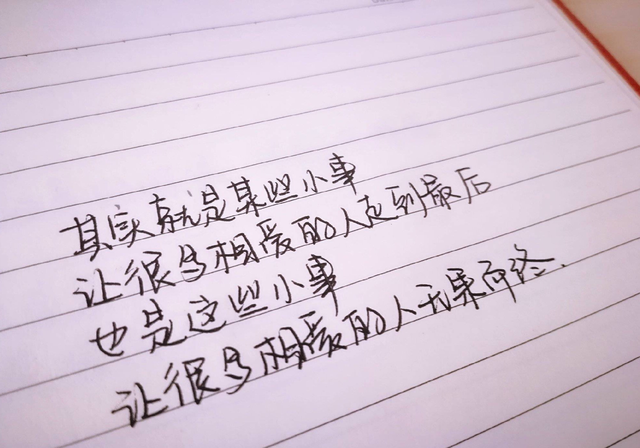 其实就是某些小事
让很多相爱的人走到最后
也是这些小事
让很多相爱的人无果而终.